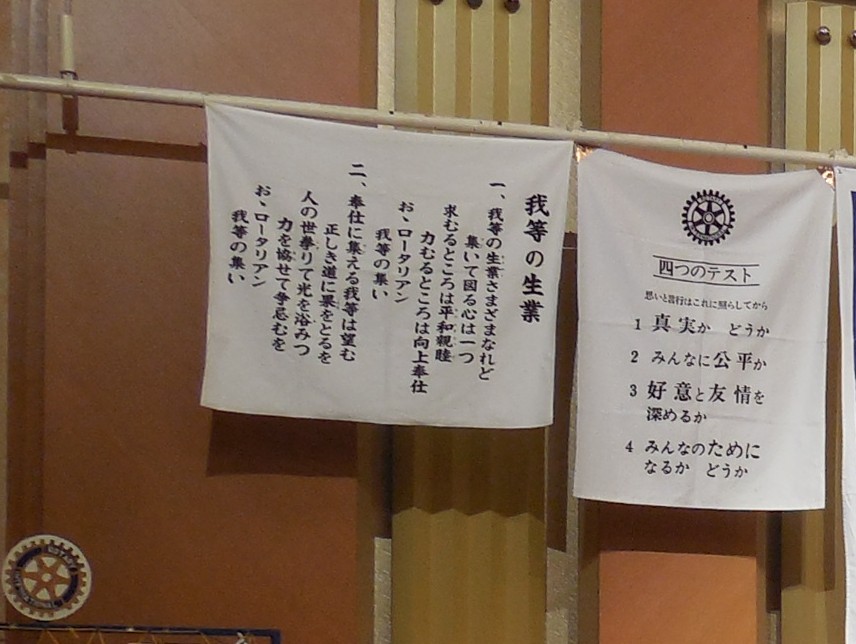 我等の生業
一、我等の生業さまざまなれど
集いて図る心は一つ
求むるところは平和親睦
力むるところは向上奉仕
お、ロータリアン
我等の集い
二、奉仕に集える我等は望む
正しき道に果をとるを
人の世挙りて光を浴みつ
力を協せて争忌むを
お、ロータリアン
我等の集い
四つのテスト
思いと言行はこれに照らしてから
1 真実か どうか
2 みんなに公平か
3 好意と友情を
深めるか
4 みんなのために
なるか どうか